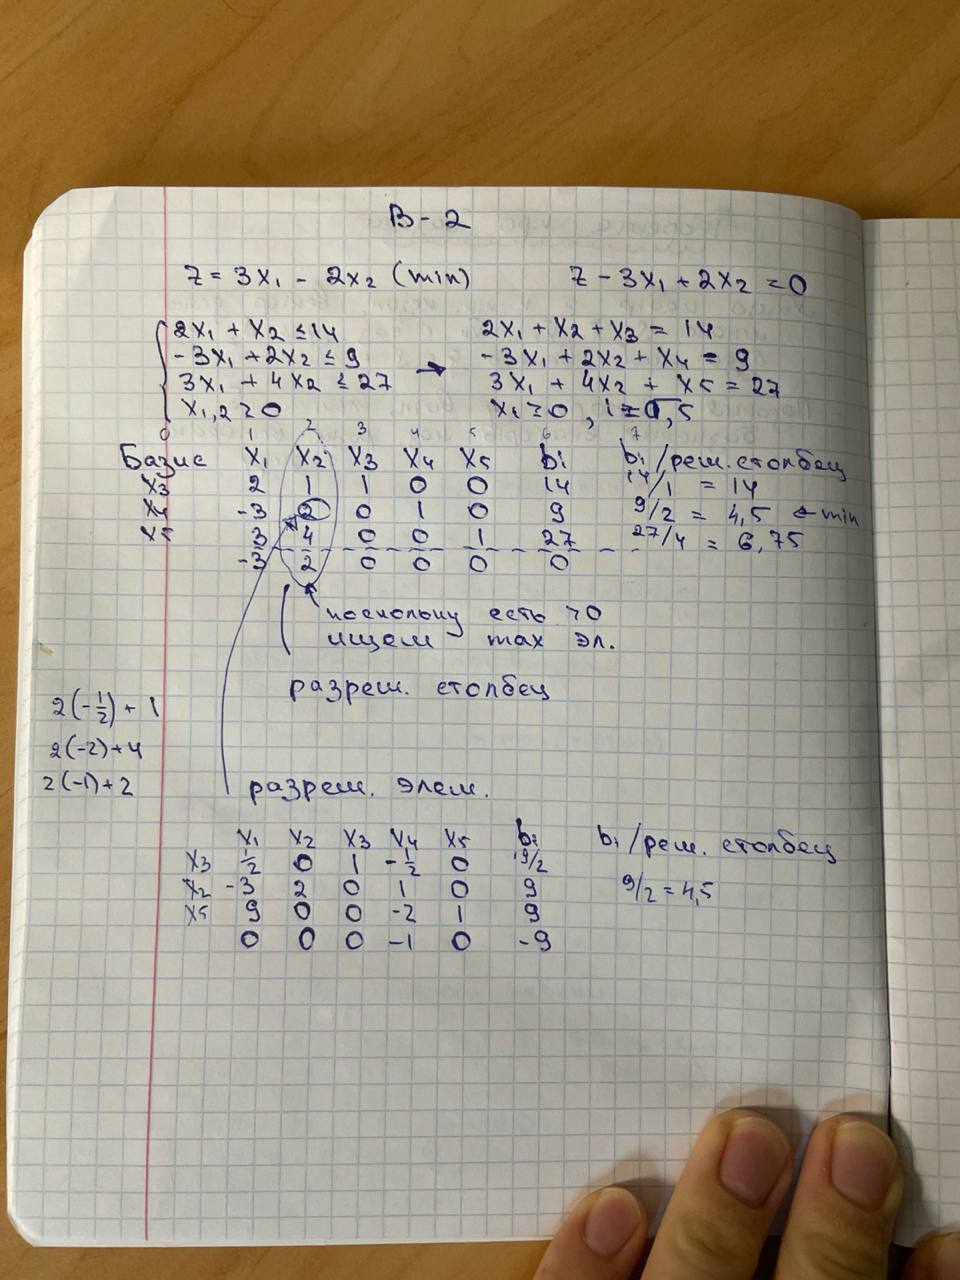 В-2
Z = 3x₁ - 2x₂ (min) Z - 3x₁ + 2x₂ = 0
2x₁ + x₂ ≤ 14 2x₁ + x₂ + x₃ = 14
-3x₁ + 2x₂ ≤ 9 → -3x₁ + 2x₂ + x₄ = 9
3x₁ + 4x₂ ≤ 27 3x₁ + 4x₂ + x₅ = 27
x₁,₂ ≥ 0 xᵢ ≥ 0, i = 1,5
0 1 2 3 4 5 6 7
Базис x₁ x₂ x₃ x₄ x₅ bᵢ bᵢ/реш. столбец
x₃ 2 1 1 0 0 14 14/1 = 14
x₄ -3 2 0 1 0 9 9/2 = 4,5 ← min
x₅ 3 4 0 0 1 27 27/4 = 6,75
-3 2 0 0 0 0
поскольку есть >0
ищем max эл.
разреш. столбец
2(-1/2) + 1
2(-2)+4
2(-1)+2
разреш. элем.
x₁ x₂ x₃ x₄ x₅ bᵢ bᵢ/реш. столбец
x₃ 1/2 0 1 -1/2 0 19/2
x₂ -3 2 0 1 0 9 9/2 = 4,5
x₅ 9 0 0 -2 1 9
0 0 0 -1 0 -9